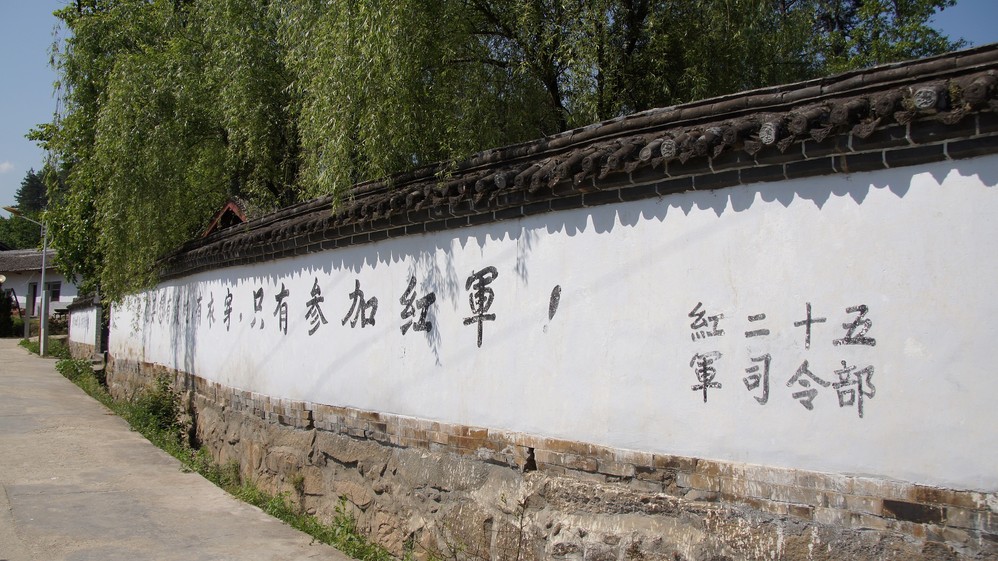 有衣穿。只有参加红軍！
紅二十五
軍司令部